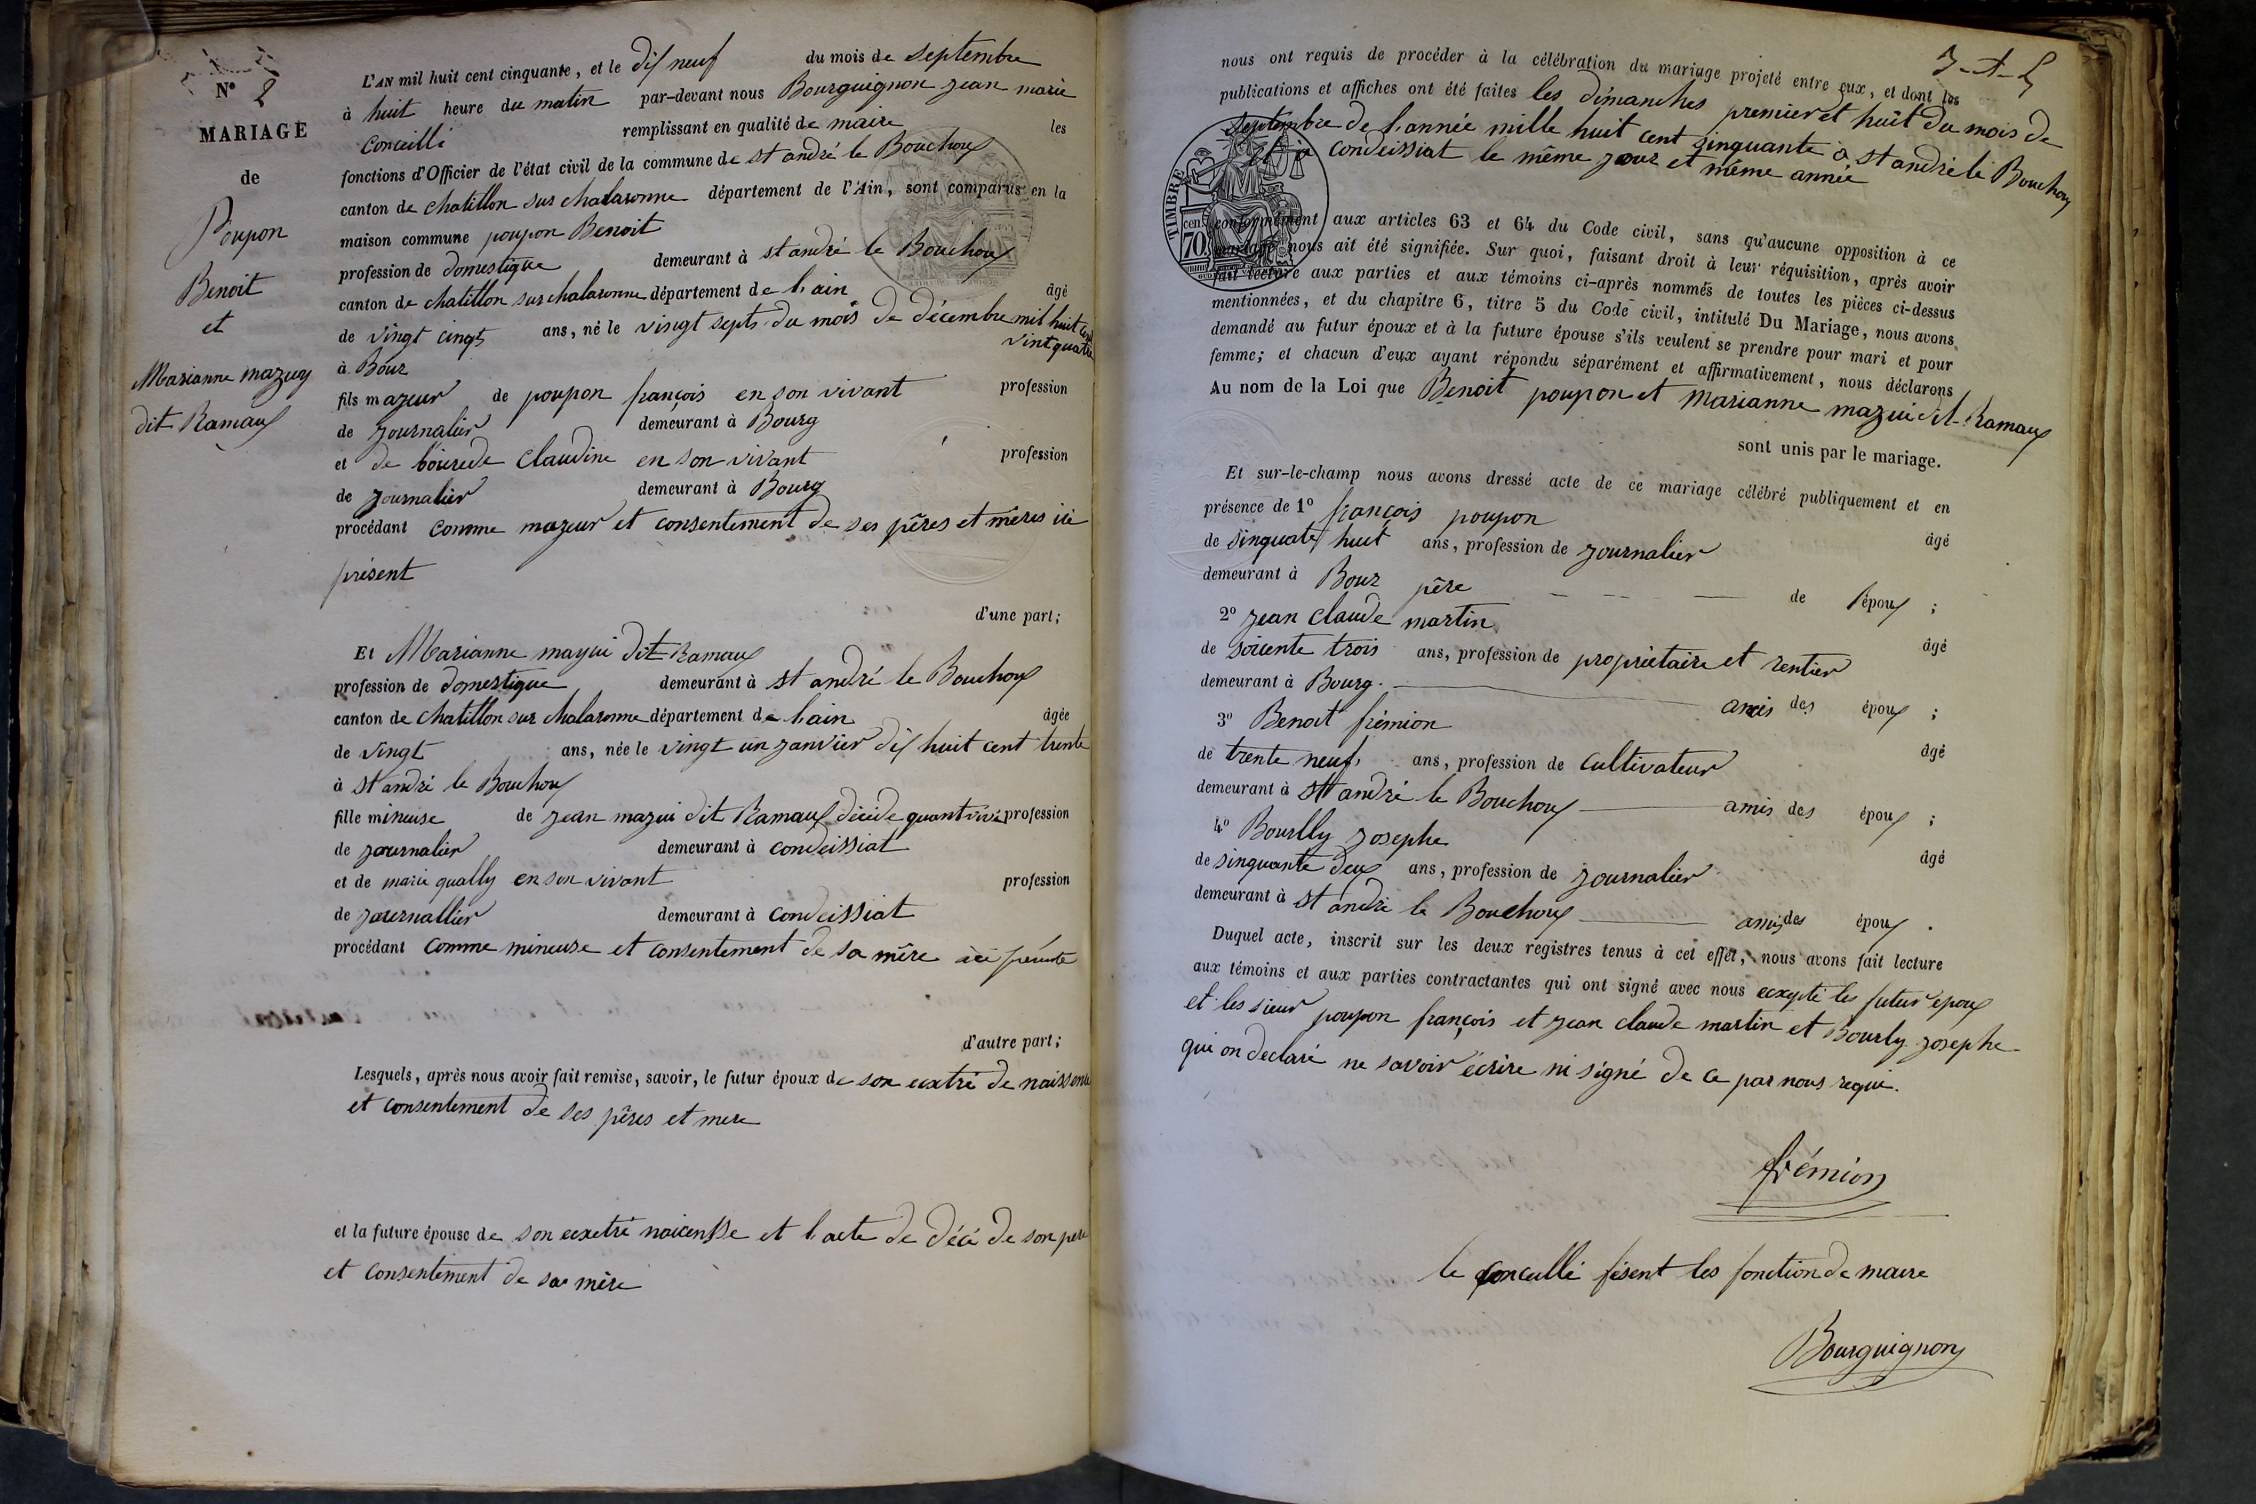 N° 2
MARIAGE
de
Poupon
Benoit
et
Marianne mazuy
dit Ramaux
L'AN mil huit cent cinquante, et le dix neuf du mois de septembre
à huit heure du matin par-devant nous Bourguignon jean marie
Conceillé remplissant en qualité de maire les
fonctions d'Officier de l'état civil de la commune de st andré le Bouchoux
canton de chatillon sur chalaronne département de l'Ain, sont comparus en la
maison commune poupon Benoit
profession de domestique demeurant à st andré le Bouchoux
canton de chatillon sur chalaronne département de l'ain âgé
de vingt cinqt ans, né le vingt septs du mois de décembre mil huit cent
vintquatre
à Bour
fils majeur de poupon françois en son vivant profession
de journalier demeurant à Bourg
et de bourede Claudine en son vivant profession
de journalier demeurant à Bourg
procédant comme majeur et consentement de ses pêres et mêres ici
présent
d'une part;
Et Marianne mazui dit Ramaux
profession de domestique demeurant à st andré le Bouchoux
canton de chatillon sur chalaronne département de l'ain âgée
de vingt ans, née le vingt un janvier dix huit cent trente
à st andré le Bouchoux
fille mineuse de jean mazui dit Ramaux décide quantvivé profession
de journalier demeurant à condeissiat
et de marie qually en son vivant profession
de journallier demeurant à condeissiat
procédant comme mineuse et consentement de sa mêre ici présente
d'autre part;
Lesquels, après nous avoir fait remise, savoir, le futur époux de son extré de naissence
et consentement de ses pêres et mere
et la future épouse de son exetré naicensse et l'acte de décé de son pere
et consentement de sa mère
nous ont requis de procéder à la célébration du mariage projeté entre eux, et dont les
publications et affiches ont été faites les dimanches premier et huit du mois de
septembre de l'année mille huit cent sinquante à st andré le Bouchoux
et à condeissiat le même jour et même année
TIMBRE
70
conformément aux articles 63 et 64 du Code civil, sans qu'aucune opposition à ce
mariage nous ait été signifiée. Sur quoi, faisant droit à leur réquisition, après avoir
fait lecture aux parties et aux témoins ci-après nommés de toutes les pièces ci-dessus
mentionnées, et du chapitre 6, titre 5 du Code civil, intitulé Du Mariage, nous avons
demandé au futur époux et à la future épouse s'ils veulent se prendre pour mari et pour
femme; et chacun d'eux ayant répondu séparément et affirmativement, nous déclarons
Au nom de la Loi que Benoit poupon et Marianne mazui dit Ramaux
sont unis par le mariage.
Et sur-le-champ nous avons dressé acte de ce mariage célébré publiquement et en
présence de 1° françois poupon
de sinquate huit ans, profession de journalier âgé
demeurant à Bour pêre de l'époux ;
2° jean claude martin
de soicente trois ans, profession de propriétaire et rentier âgé
demeurant à Bourg. amis des époux ;
3° Benoit frémion
de trente neuf ans, profession de cultivateur âgé
demeurant à st andré le Bouchoux amis des époux ;
4° Bourlly josephe
de sinquante deux ans, profession de journalier âgé
demeurant à st andré le Bouchoux amis des époux .
Duquel acte, inscrit sur les deux registres tenus à cet effet, nous avons fait lecture
aux témoins et aux parties contractantes qui ont signé avec nous exepté les futur epoux
et les sieur poupon françois et jean claude martin et Bourly josephe
qui on declaré ne savoir écrire ni signé de ce par nous requi.
frémion
le Conceillé fésent les fonction de maire
Bourguignon